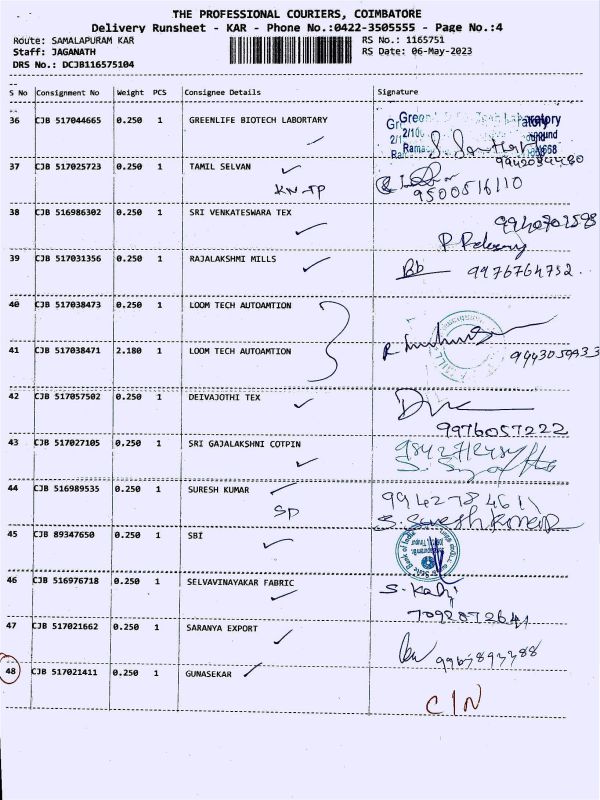 THE PROFESSIONAL COURIERS, COIMBATORE
Delivery Runsheet - KAR - Phone No.:0422-3505555 - Page No.:4
Route: SAMALAPURAM KAR RS No.: 1165751
Staff: JAGANATH RS Date: 06-May-2023
DRS No.: DCJB116575104
S No Consignment No Weight PCS Consignee Details Signature
36 CJB 517044665 0.250 1 GREENLIFE BIOTECH LABORTARY
37 CJB 517025723 0.250 1 TAMIL SELVAN
KN-TP 9500516110
38 CJB 516986302 0.250 1 SRI VENKATESWARA TEX
39 CJB 517031356 0.250 1 RAJALAKSHMI MILLS
Bb 9976764752
40 CJB 517038473 0.250 1 LOOM TECH AUTOAMTION
41 CJB 517038471 2.180 1 LOOM TECH AUTOAMTION
42 CJB 517057502 0.250 1 DEIVAJOTHI TEX
9976057222
43 CJB 517027105 0.250 1 SRI GAJALAKSHNI COTPIN
44 CJB 516989535 0.250 1 SURESH KUMAR
SP 9942784611
S. Suresh Kumar
45 CJB 89347650 0.250 1 SBI
46 CJB 516976718 0.250 1 SELVAVINAYAKAR FABRIC
7092872641
47 CJB 517021662 0.250 1 SARANYA EXPORT
48 CJB 517021411 0.250 1 GUNASEKAR
C/N